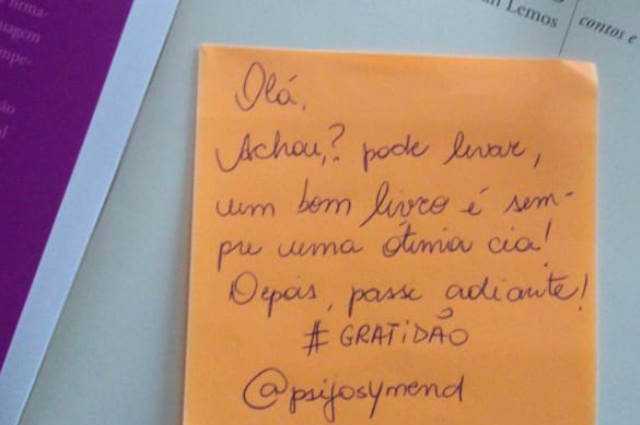 firma-
uagem
mpe-
ão
Lemos
contos e
Olá,
Achou,? pode levar,
um bom livro é sem-
pre uma ótima cia!
Depois, passe adiante!
# GRATIDÃO
@psijosymend